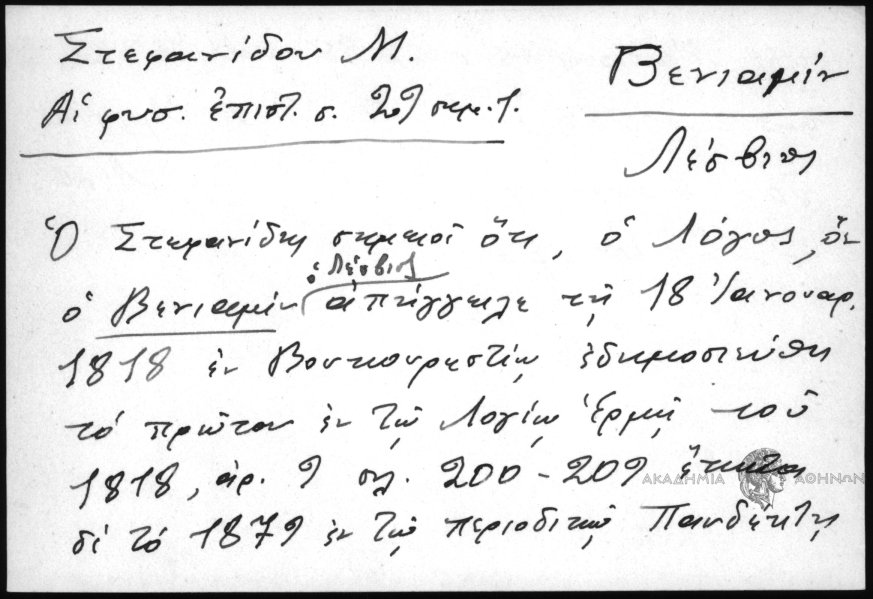 Στεφανίδου Μ.
Αἱ φυσ. ἐπιστ. σ. 29 σημ. 1.
Βενιαμίν
Λέσβιος
Ὁ Στεφανίδης σημειοῖ ὅτι, ὁ Λόγος, ὃν
ὁ Λέσβιος
ὁ Βενιαμίν ἀπήγγειλε τῇ 18 Ἰανουαρ.
1818 ἐν Βουκουρεστίῳ ἐδημοσιεύθη
τό πρῶτον ἐν τῷ Λογίῳ Ἑρμῇ τοῦ
1818, ἀρ. 9 σελ. 200-209
ΑΚΑΔΗΜΙΑ ΑΘΗΝΩΝ
δέ τό 1879 ἐν τῷ περιοδικῷ Πανδέκτης